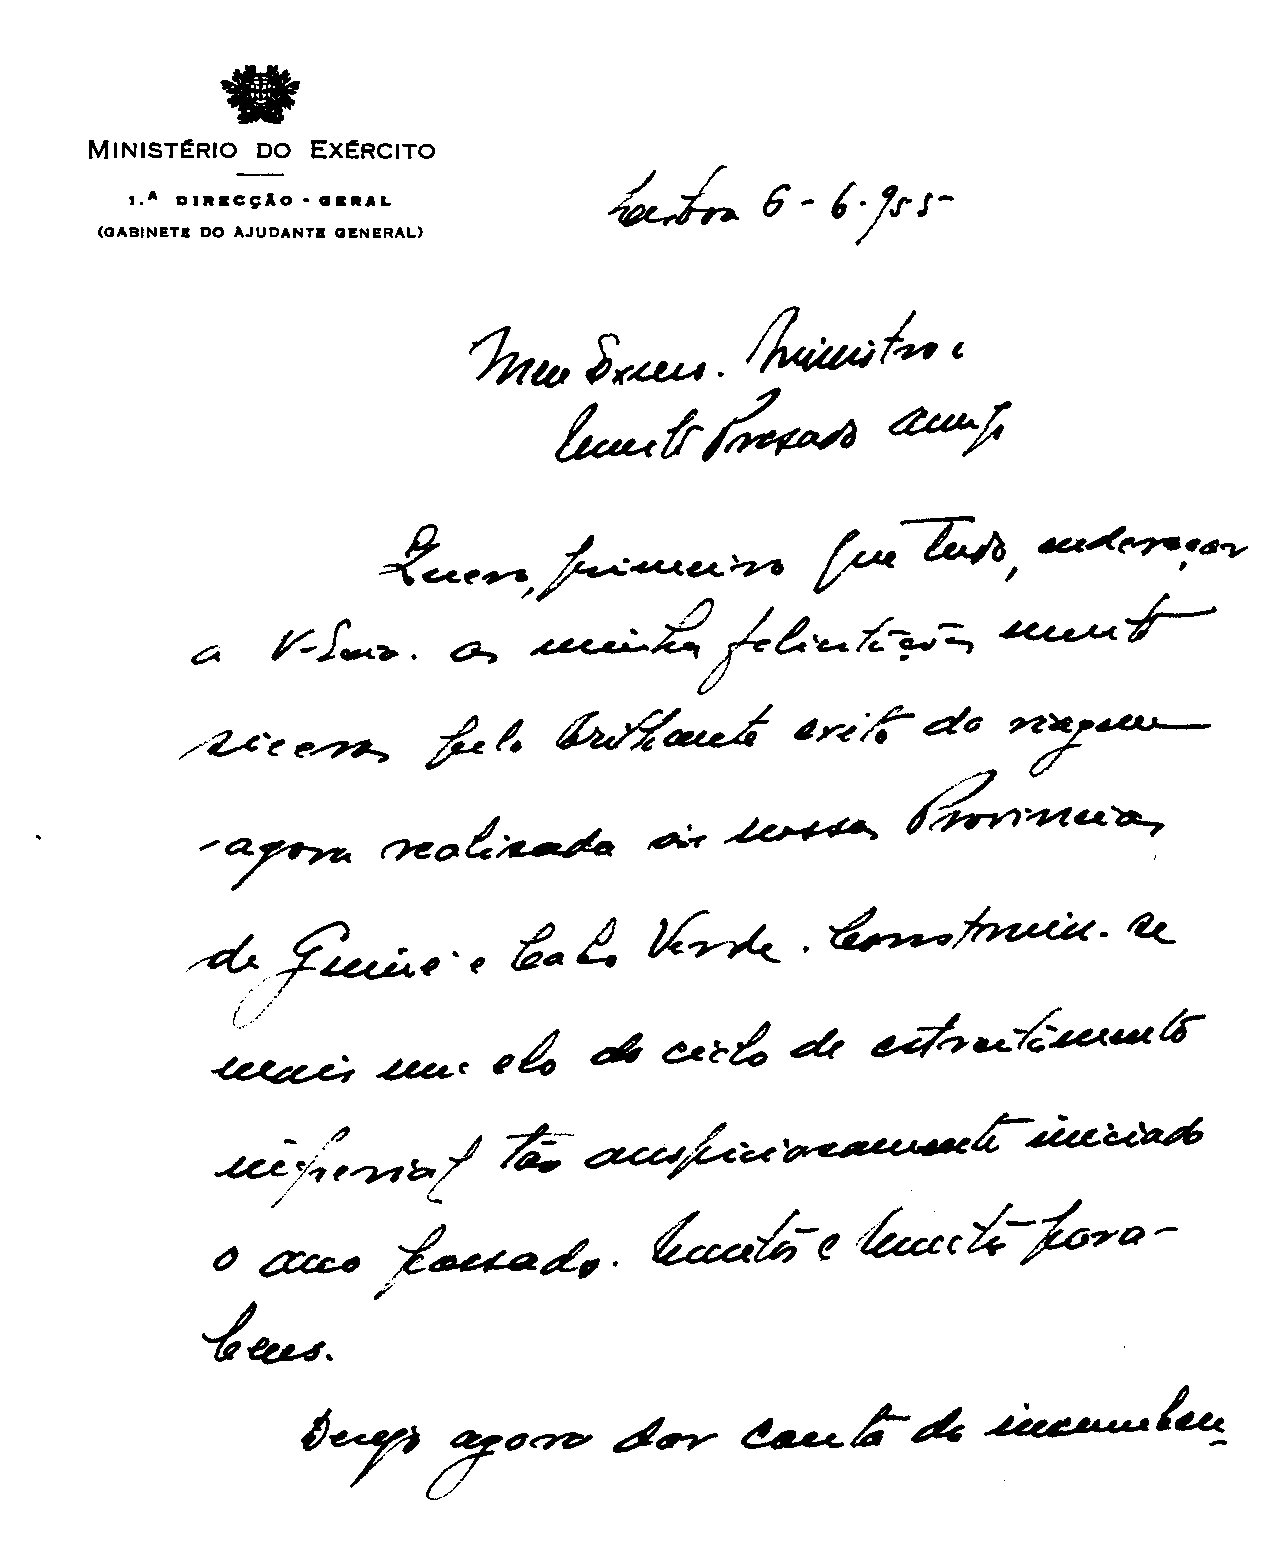 MINISTÉRIO DO EXÉRCITO
1.ª DIRECÇÃO-GERAL
(GABINETE DO AJUDANTE GENERAL)
Lisboa 6-6-955
Meu Exmo. Ministro e
Muito Presado Amigo
Quero, primeiro que tudo, endereçar
a V. Exa. as minhas felicitações muito
sinceras pelo brilhante exito da viagem
agora realizada às nossas Provincias
de Guiné e Cabo Verde. Construiu-se
mais um elo do ciclo de estreitamento
imperial tão auspiciosamente iniciado
o ano passado. Muitos e muitos para-
bens.
Desejo agora dar conta da incumben-